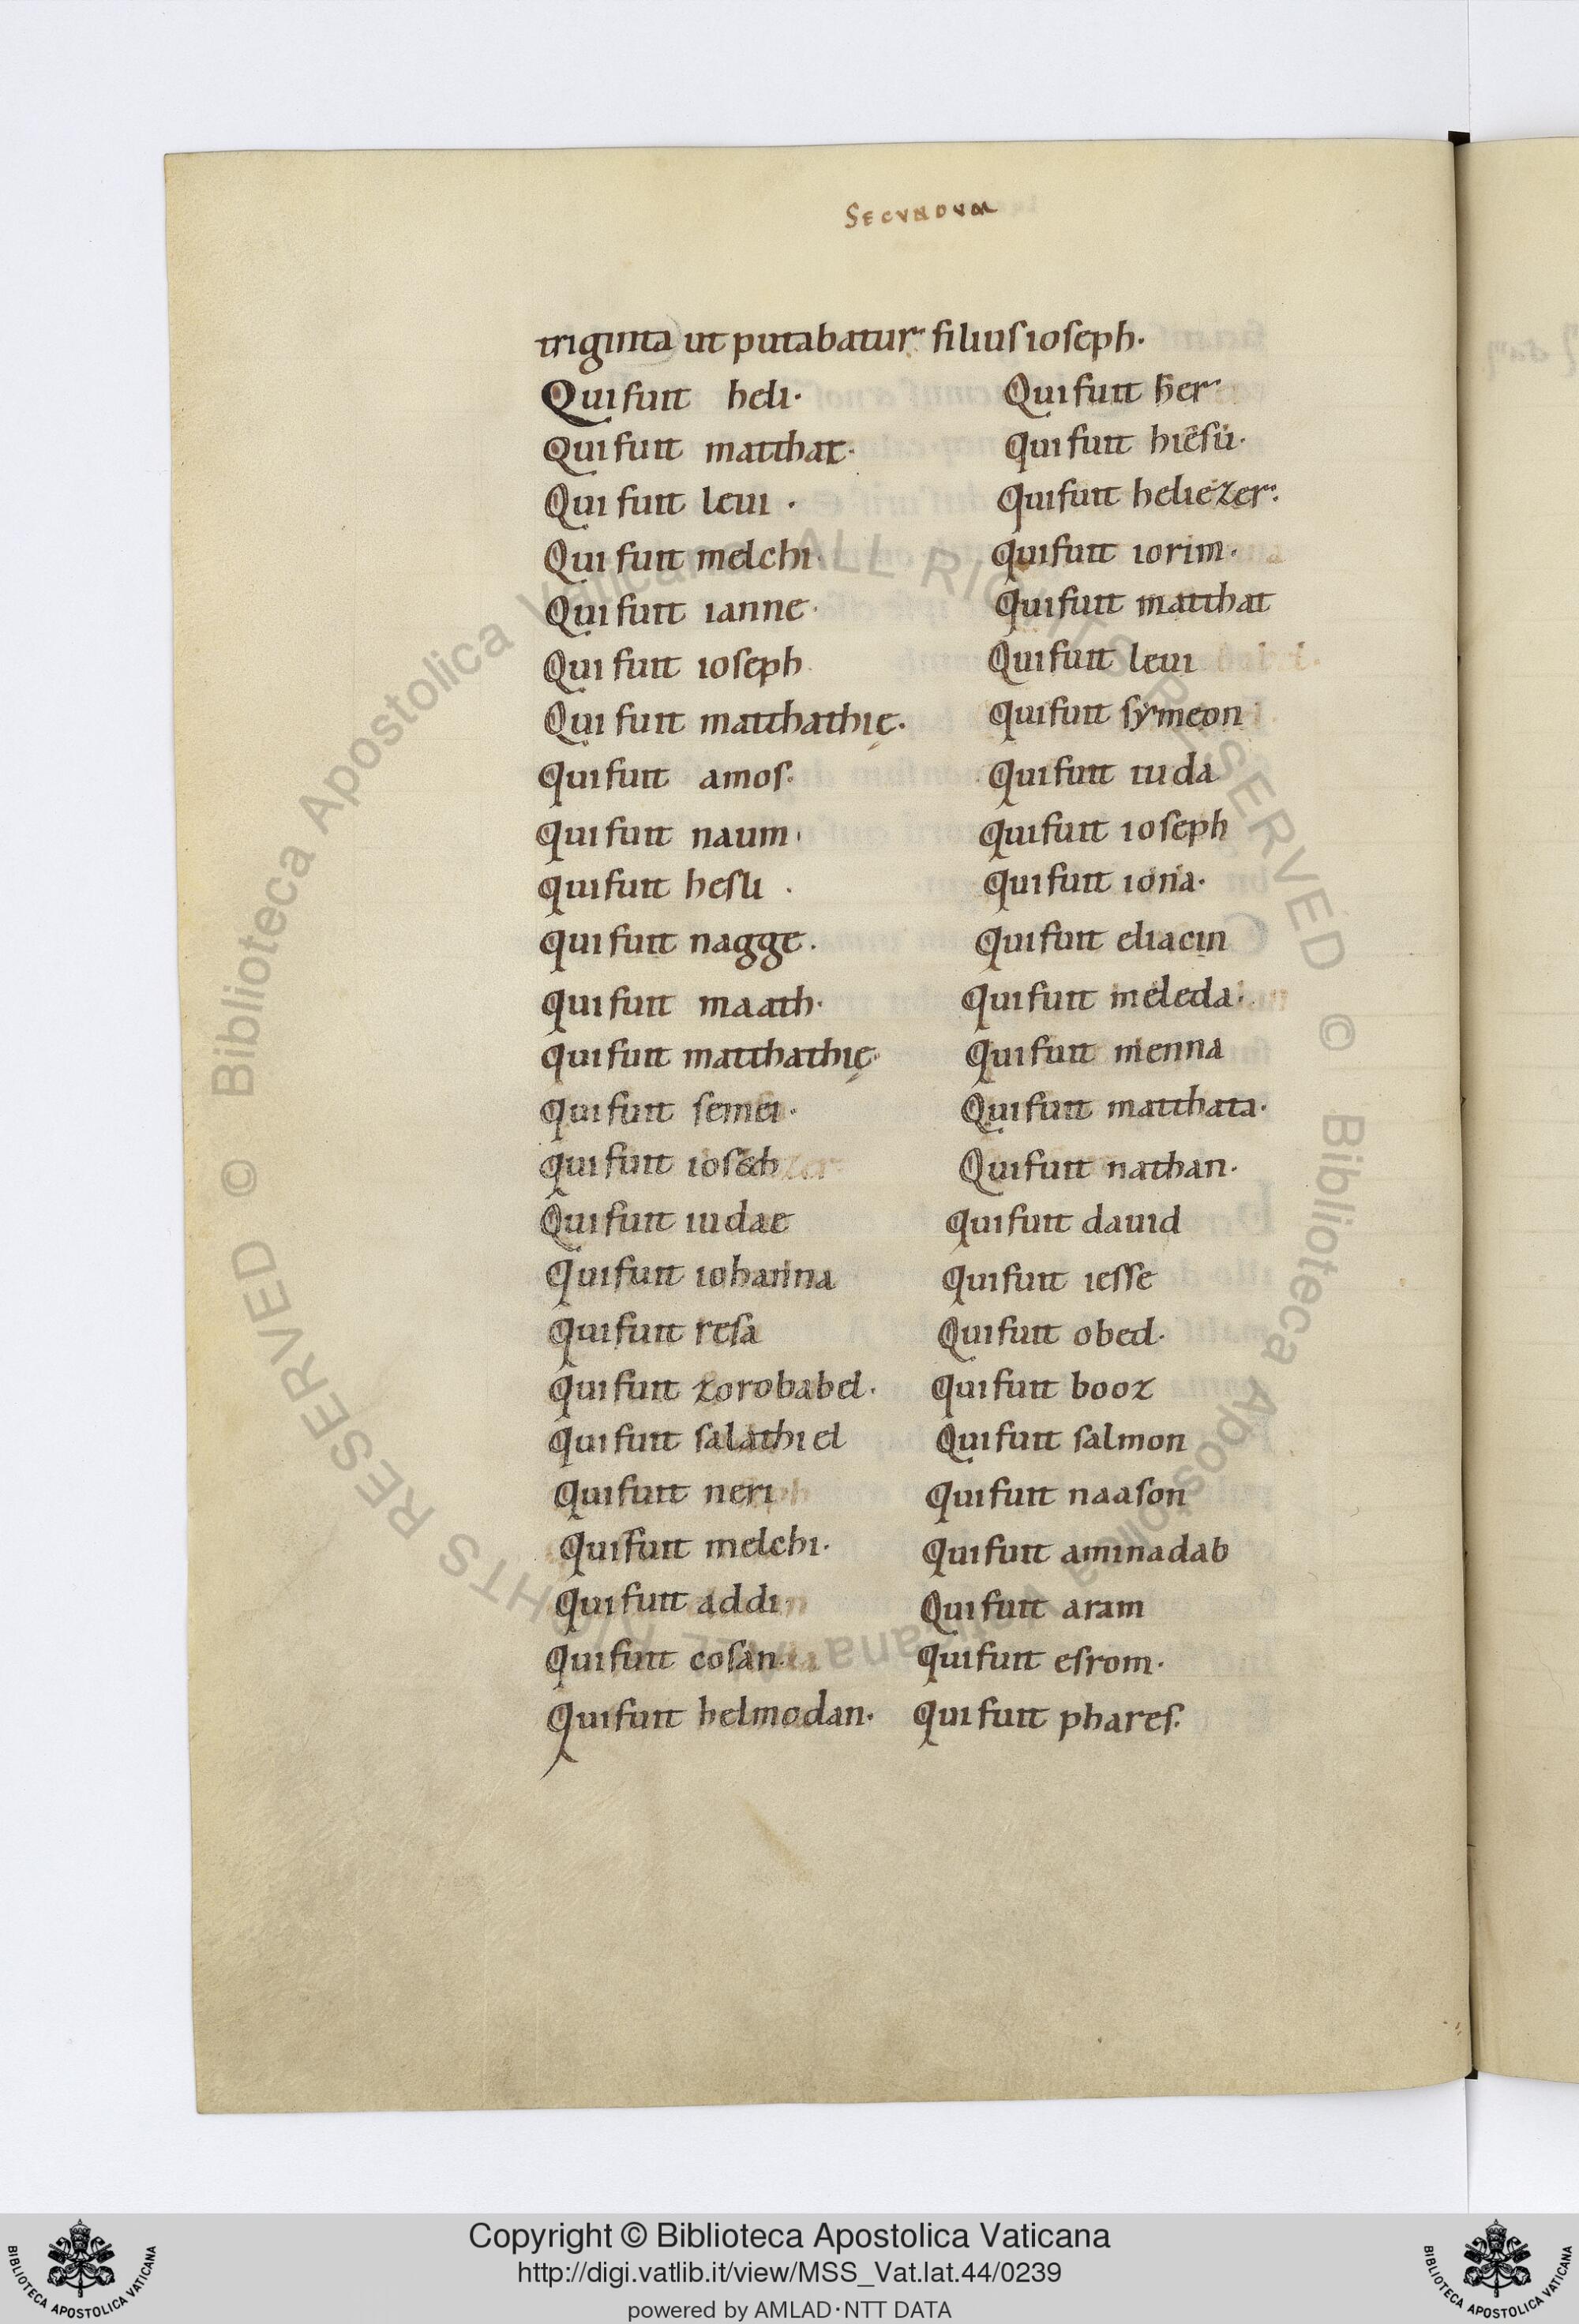 SECVNDVM
triginta ut putabatur filius ioseph·
Qui fuit heli·
Qui fuit matthat·
Qui fuit leui ·
Qui fuit melchi·
Qui fuit ianne·
Qui fuit ioseph
Qui fuit matthathię·
Qui fuit amos·
Qui fuit naum·
Qui fuit hesli ·
Qui fuit nagge·
Qui fuit maath·
Qui fuit matthathię·
Qui fuit semei·
Qui fuit iosech
Qui fuit iudae
Qui fuit iohanna
Qui fuit resa
Qui fuit zorobabel·
Qui fuit salathiel
Qui fuit neri
Qui fuit melchi·
Qui fuit addi·
Qui fuit cosan·
Qui fuit helmodan·
Qui fuit her
Qui fuit hiesu·
Qui fuit heliezer·
Qui fuit iorim·
Qui fuit matthat
Qui fuit leui
Qui fuit symeon
Qui fuit iuda
Qui fuit ioseph
Qui fuit iona·
Qui fuit eliacin
Qui fuit meleda·
Qui fuit menna
Qui fuit matthata·
Qui fuit nathan·
Qui fuit dauid
Qui fuit iesse
Qui fuit obed·
Qui fuit booz
Qui fuit salmon
Qui fuit naason
Qui fuit aminadab
Qui fuit aram
Qui fuit esrom·
Qui fuit phares·
© Biblioteca Apostolica Vaticana ALL RIGHTS RESERVED
© Biblioteca Apostolica Vaticana ALL RIGHTS RESERVED
Copyright © Biblioteca Apostolica Vaticana
http://digi.vatlib.it/view/MSS_Vat.lat.44/0239
powered by AMLAD·NTT DATA
BIBLIOTECA APOSTOLICA VATICANA
BIBLIOTECA APOSTOLICA VATICANA